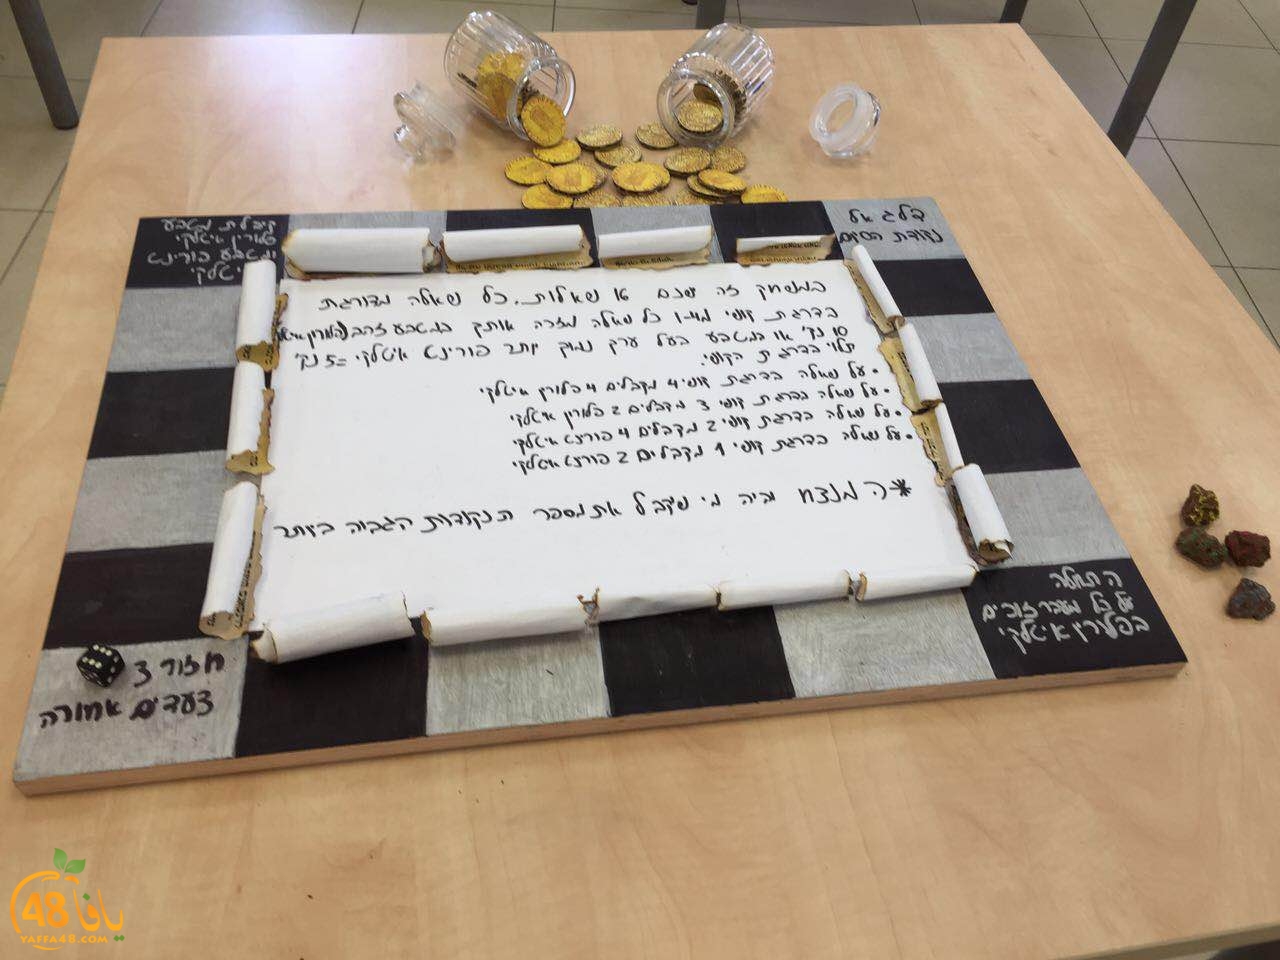 קיבלת מטבע
פלורין איטלקי
ומטבע פורינט
איטלקי
דלג אל
נקודת הסיום
במשחק זה ישנם 16 שאלות. כל שאלה מדורגת
בדרגת קושי מ-1-4 כל שאלה מזכה אותך במטבע זהב
10 נק' או במטבע בעל ערך נמוך יותר פורינט איטלקי =5 נק'
תלוי בדרגת הקושי.
• על שאלה בדרגת קושי 4 מקבלים 4 פלורין איטלקי
• על שאלה בדרגת קושי 3 מקבלים 2 פלורין איטלקי
• על שאלה בדרגת קושי 2 מקבלים 4 פורינט איטלקי
• על שאלה בדרגת קושי 1 מקבלים 2 פורינט איטלקי
* המנצח יהיה מי שקיבל את מספר הנקודות הגבוה ביותר
התחלה
על כל מעבר זוכים
בפלורין איטלקי
חזור 3
צעדים אחורה
48 يافا
YAFFA48.COM